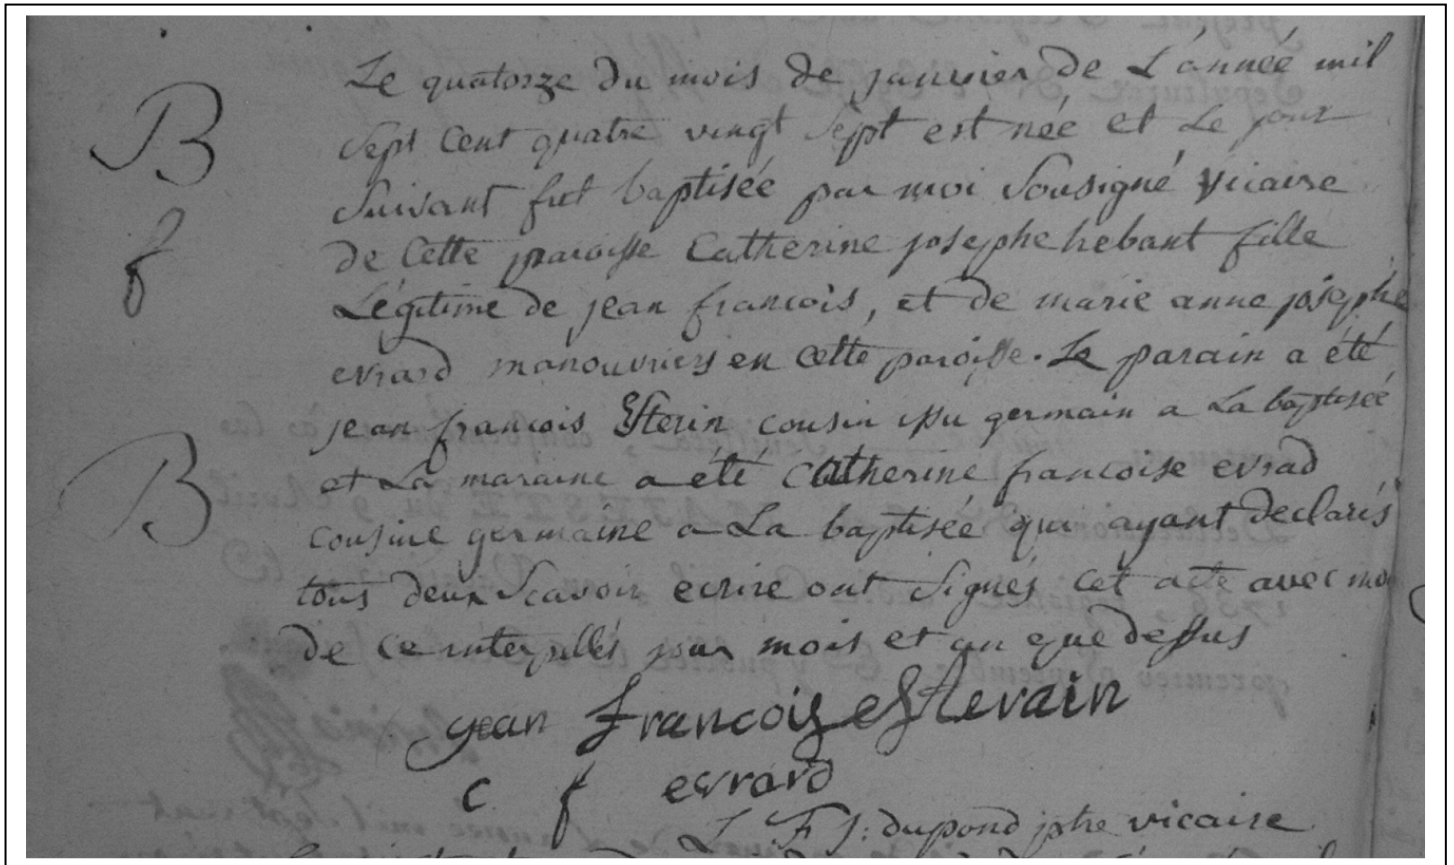 B
Le quatorze du mois de janvier de L'année mil
sept cent quatre vingt sept est née et Le jour
suivant fut baptisée par moi sousigné vicaire
f
de cette paroisse Catherine josephe hebant fille
Légitime de jean francois, et de marie anne josephe
evrard manouvriers en cette paroisse. Le parain a été
jean francois Esterin cousin issu germain a La baptisée
B
et La maraine a été Catherine francoise evrad
cousine germaine a La baptisée qui ayant declarés
tous deux scavoir ecrire ont signés cet acte avec moi
de ce interpellés jour mois et an que dessus
jean francois estevain
c f evrard
L. F. J: dupond ptre vicaire